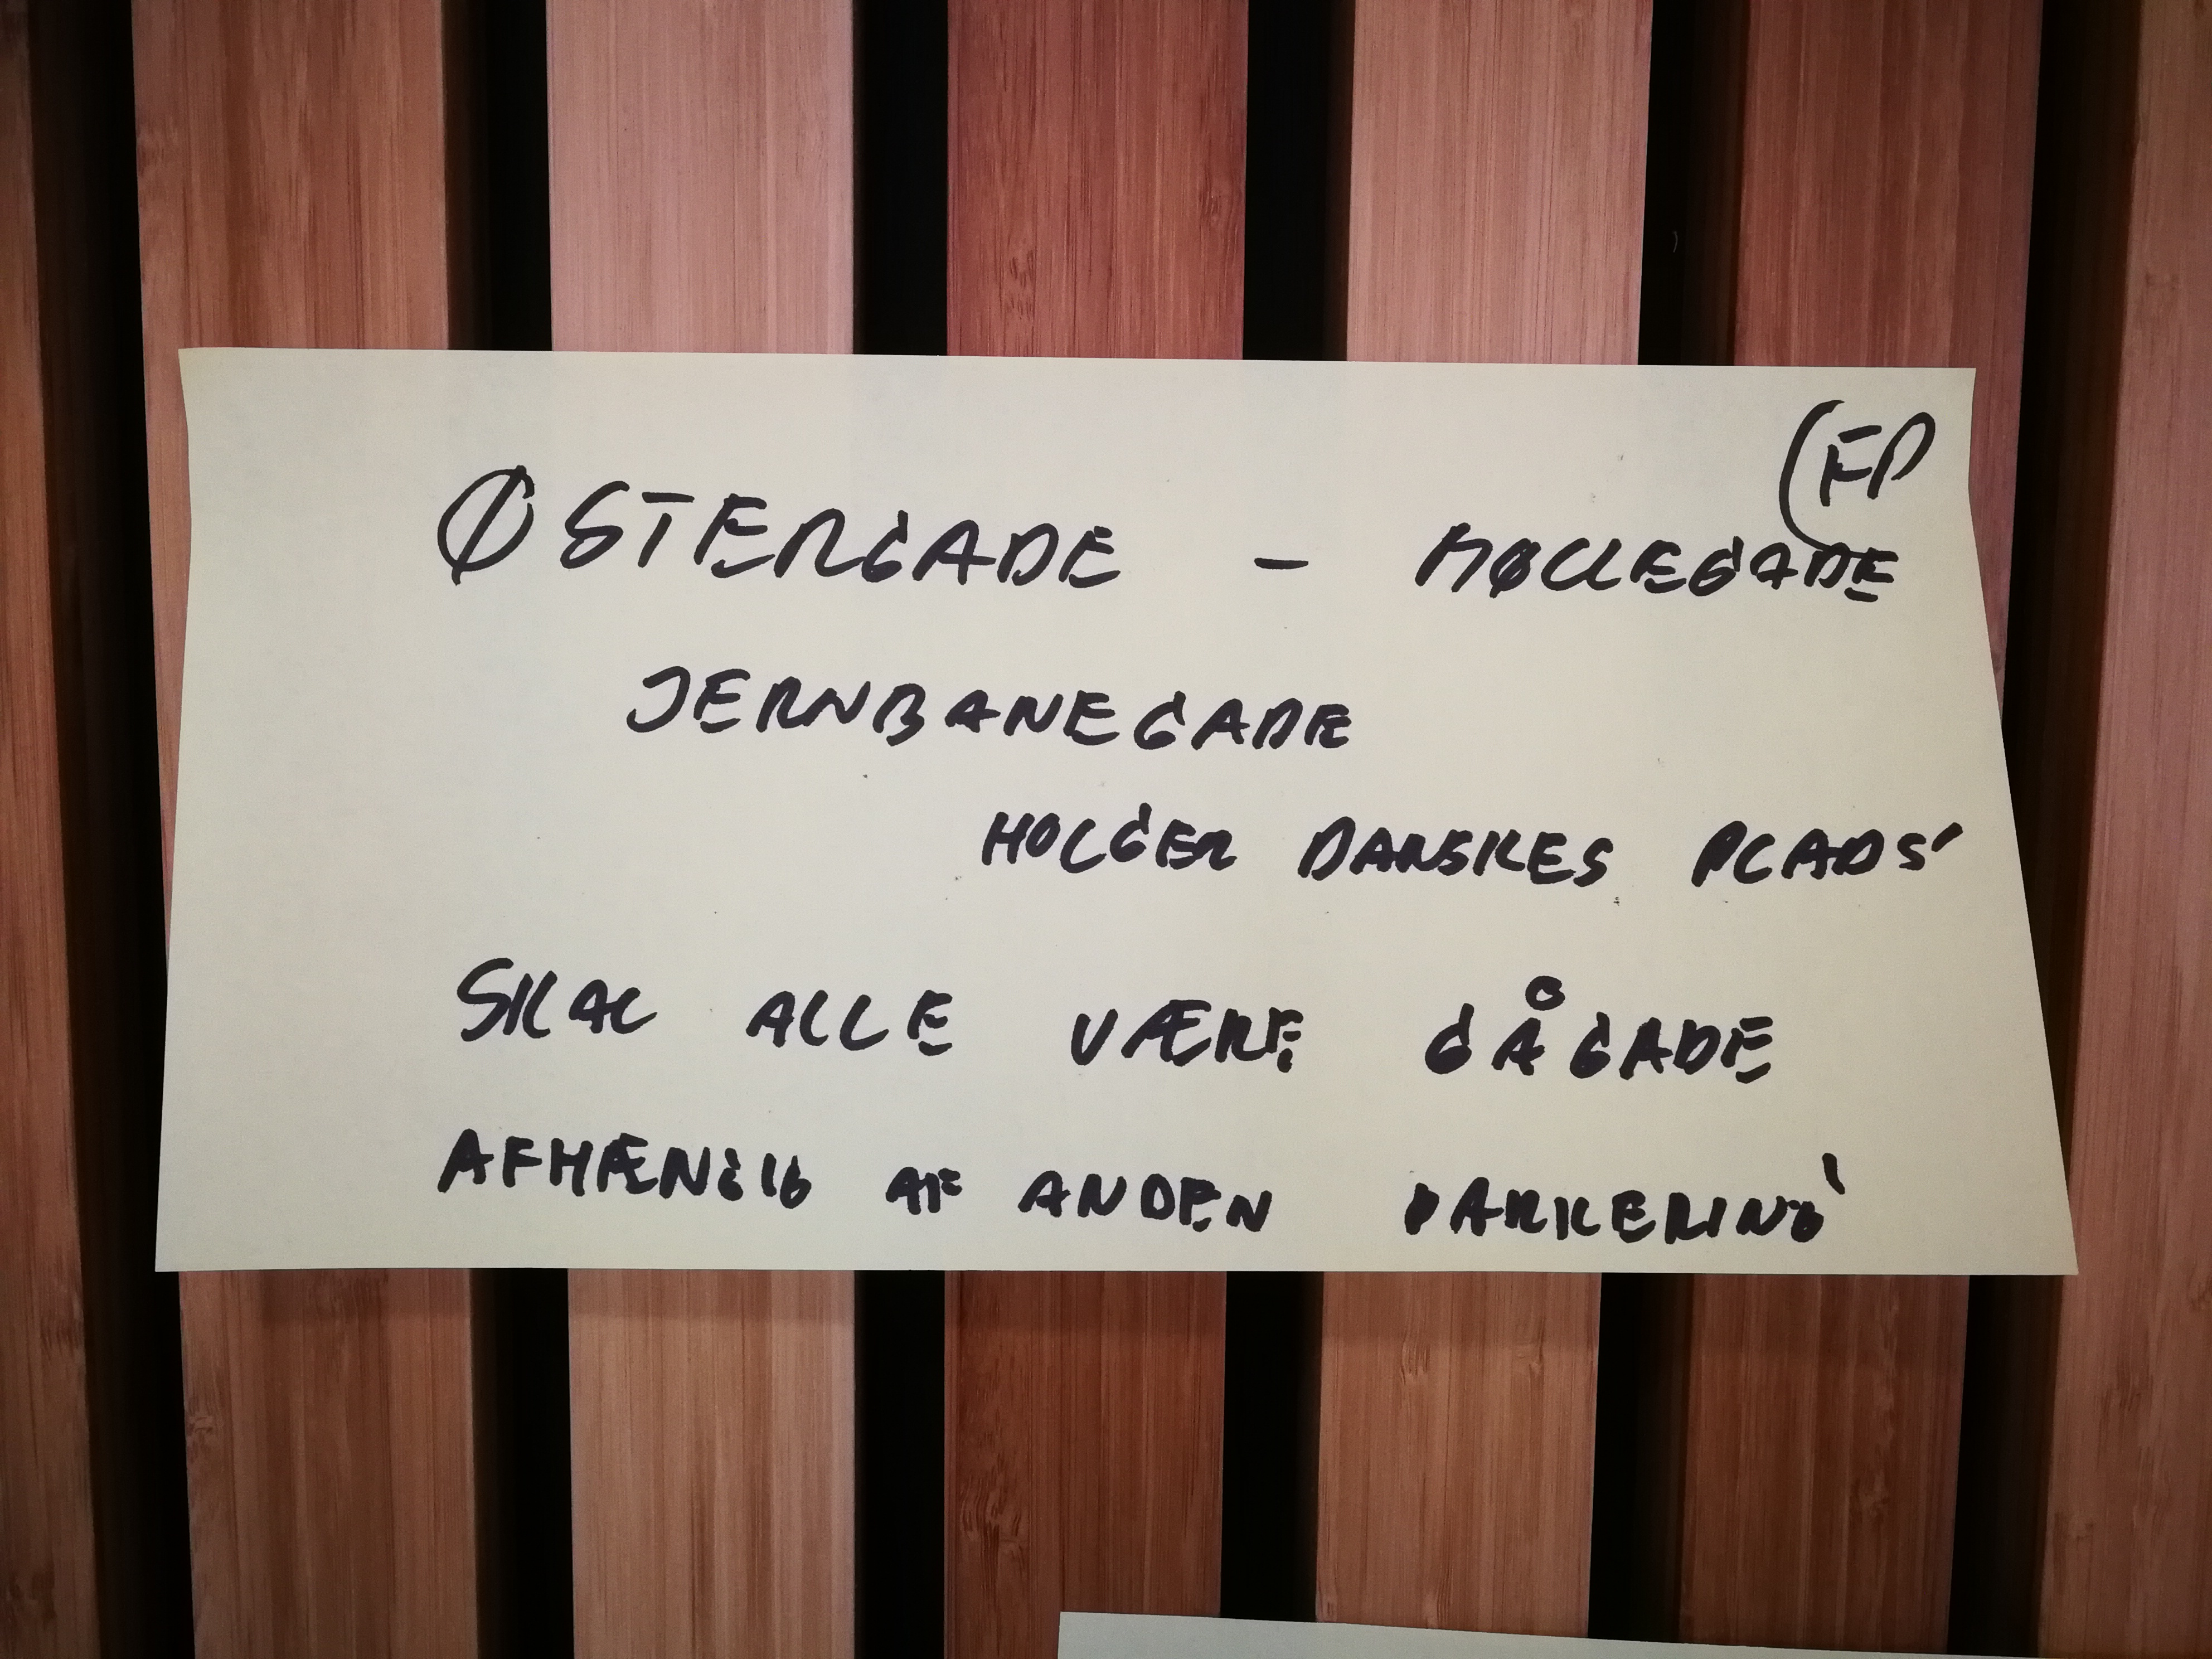 (FP
ØSTERGADE - MØLLEGADE
JERNBANEGADE
HOLGER DANSKES PLADS
SKAL ALLE VÆRE GÅGADE
AFHÆNGIG AF ANDEN PARKERING